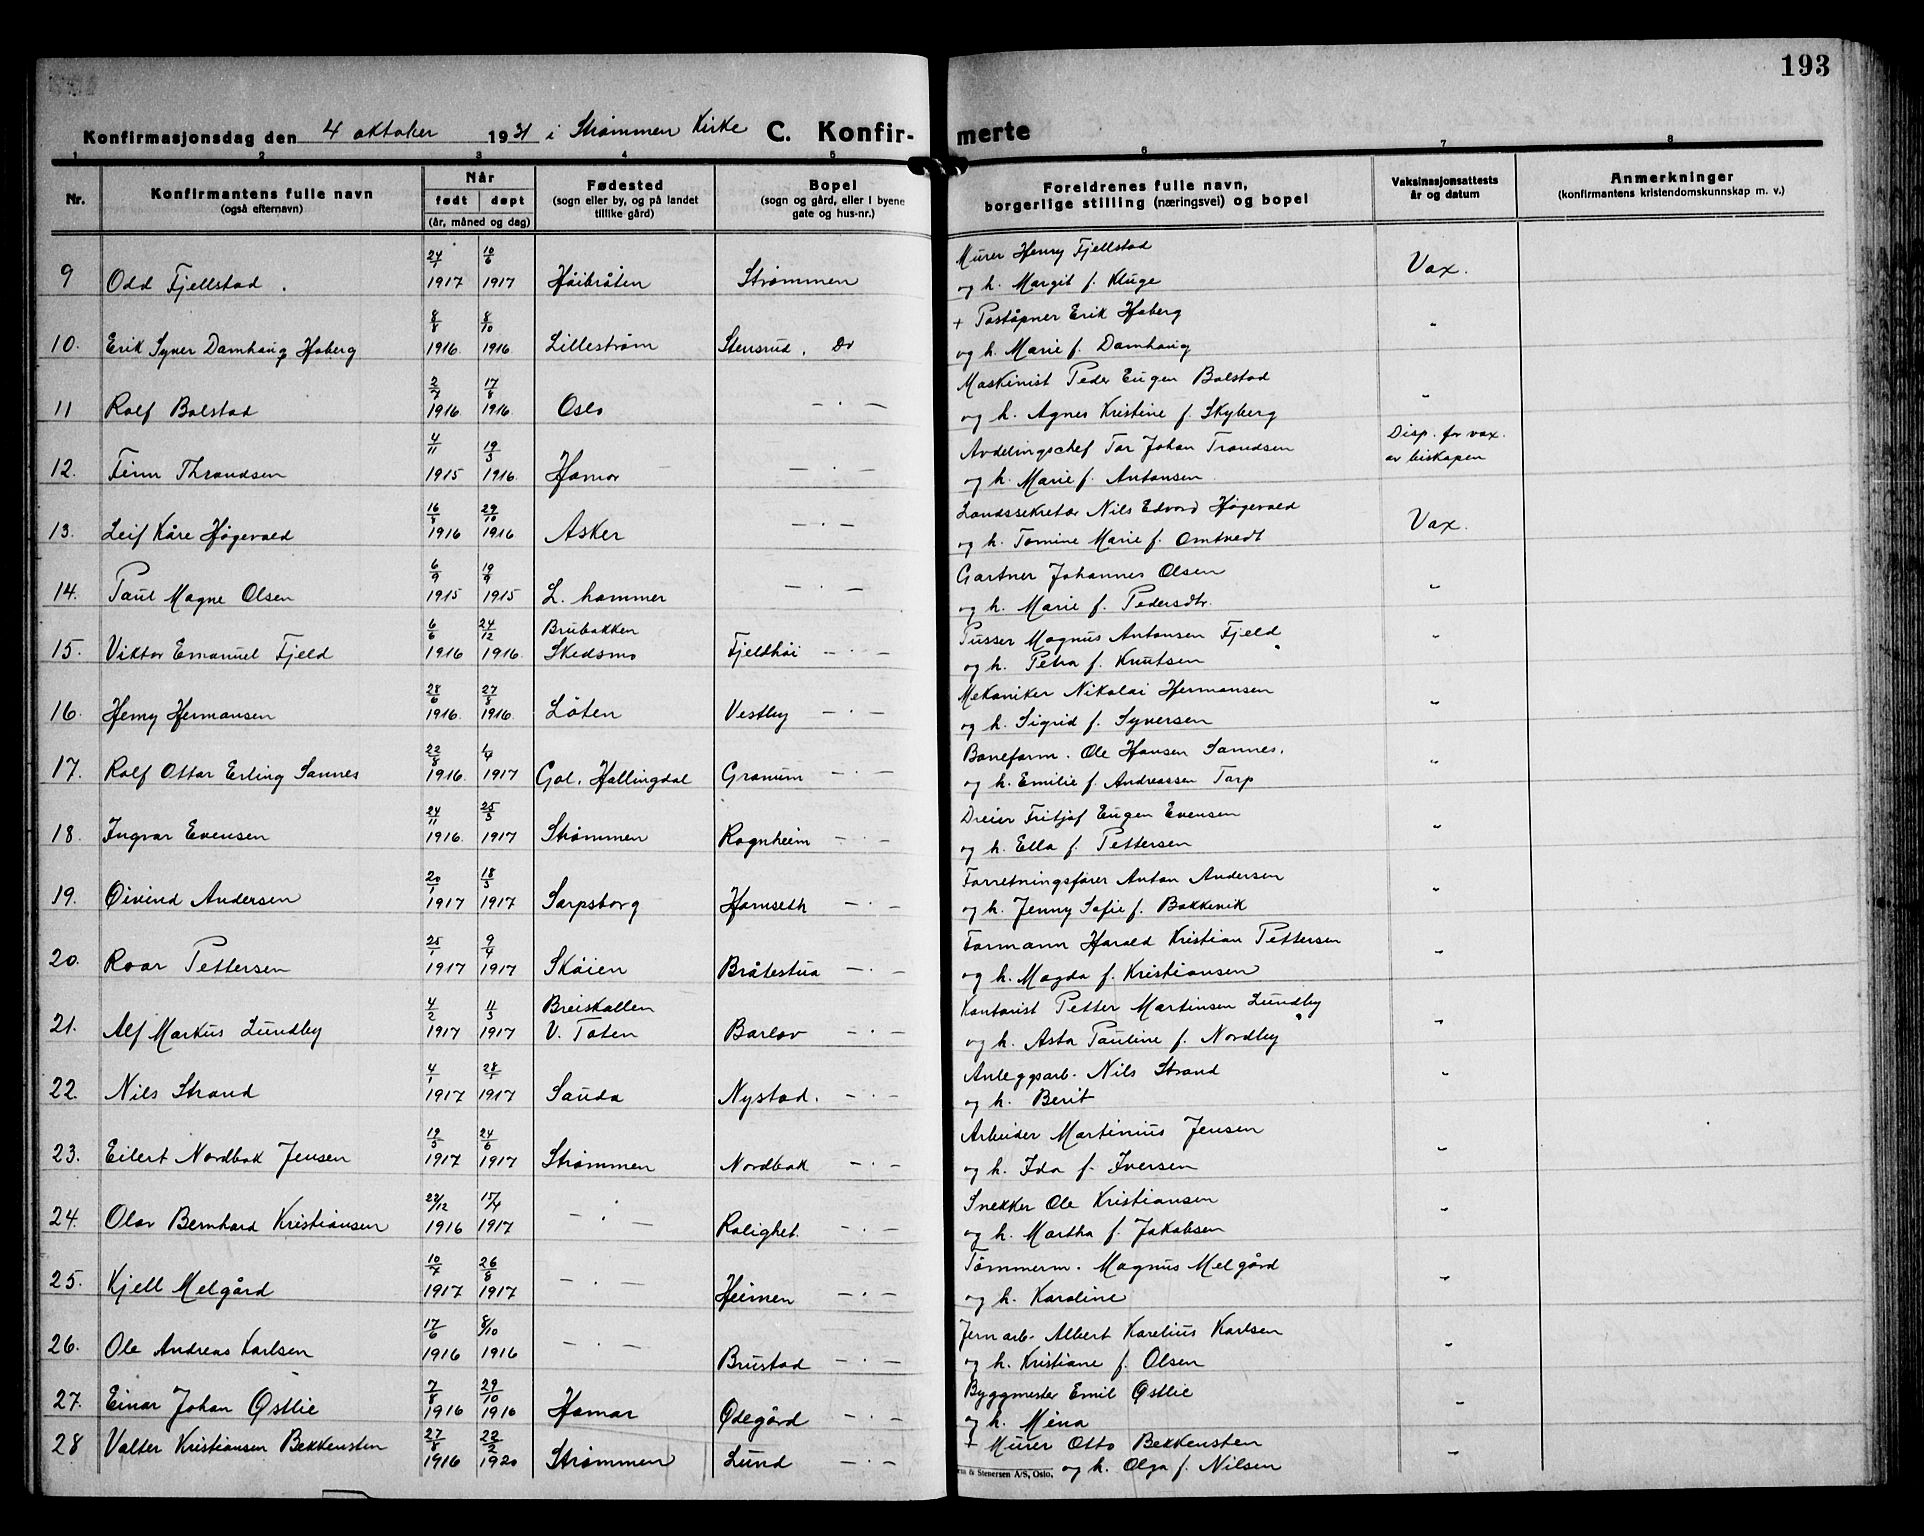 193
Konfirmasjonsdag den 4 oktober 1931 i Strømmen Kirke C. Konfir- merte
1 2 3 4 5 6 7 8
Nr. Konfirmantens fulle navn (også efternavn) Når født døpt (år, måned og dag) Fødested (sogn eller by, og på landet tillike gård) Bopel (sogn og gård, eller i byene gate og hus-nr.) Foreldrenes fulle navn, borgerlige stilling (næringsvei) og bopel Vaksinasjonsattests år og datum Anmerkninger (konfirmantens kristendomskunnskap m. v.)
24/1 10/6 Murer Henry Fjellstad
9 Odd Fjellstad. 1917 1917 Høibråten Strømmen og h. Margit f. Kluge Vax.
8/8 8/10 + Poståpner Erik Hoberg
10. Erik Syver Damhaug Hoberg 1916. 1916. Lillestrøm Stensrud. Do og h. Marie f. Damhaug "
2/7 17/8 Maskinist Peder Eugen Bolstad
11 Rolf Bolstad 1916 1916. Oslo — · — og h. Agnes Kristine f. Skyberg "
4/11 19/3 Avdelingschef Tor Johan Trondsen Disp. for vax.
12. Finn Throndsen 1915 1916. Hamar — · — og h. Marie f. Antonsen av biskopen
16/8 29/10 Landssekretær Nils Edvard Høgevold
13. Leif Kåre Høgevold 1916 1916 Asker — · — og h. Tomine Marie f. Omtvedt Vax.
6/9 19/9 Gartner Johannes Olsen
14. Paul Magne Olsen 1915 1915 L. hammer — · — og h. Marie f. Pedersdtr. "
6/6 24/12 Brubakken Pusser Magnus Antonsen Fjeld
15. Viktor Emanuel Fjeld 1916 1916. Skedsmo Fjeldhøi — · — og h. Petra f. Knutsen "
28/6 27/8 Mekaniker Nikolai Hermansen
16. Henry Hermansen 1916. 1916. Løten Vestby — · — og h. Sigrid f. Syversen "
22/8 1/4 Baneform. Ole Hansen Sannes.
17. Rolf Ottar Erling Sannes 1916. 1917 Gol. Hallingdal Granum — · — og h. Emilie f. Andreassen Torp "
24/11 25/3 Dreier Fritjof Eugen Evensen
18. Ingvar Evensen 1916. 1917 Strømmen Rognheim — · — og h. Ella f. Pettersen "
20/1 18/3 Forretningsfører Anton Andersen
19. Øivind Andersen 1917 1917 Sarpsborg Hamseth — · — og h. Jenny Sofie f. Bakkevik "
25/1 9/4 Formann Harald Kristian Pettersen
20. Roar Pettersen 1917 1917 Skøien Bråtestua — · — og h. Magda f. Kristiansen "
4/2 11/3 Breiskallen Kontorist Petter Martinsen Lundby
21. Alf Markus Lundby 1917 1917 V. Toten Barlov — · — og h. Asta Pauline f. Nordby "
4/1 28/1 Anleggsarb. Nils Strand
22. Nils Strand 1917 1917 Sauda Nystad. — · — og h. Berit "
19/5 24/6 Arbeider Martinius Jensen
23. Eilert Nordbak Jensen 1917 1917 Strømmen Nordbak — · — og h. Ida f. Iversen "
22/12 15/4 Snekker Ole Kristiansen
24. Olav Bernhard Kristiansen 1916 1917 — · — Rolighet. — · — og h. Martha f. Jakobsen "
10/7 26/8 Tømmerm. Magnus Melgård
25. Kjell Melgård 1917 1917 — · — Heimen — · — og h. Karoline "
17/6 8/10 Jernarb. Albert Karelius Karlsen
26. Ole Andreas Karlsen 1916 1916 — · — Brustad — · — og h. Kristiane f. Olsen "
7/8 29/10 Byggmester Emil Østlie
27. Einar Johan Østlie 1916 1916 Hamar Ødegård — · — og h. Mina "
27/8 22/2 + Murer Otto Bekkensten
28 Valter Kristiansen Bekkensten 1916 1920 Strømmen Lund — · — og h. Olga f. Nilsen "
& Stenersen A/S, Oslo.